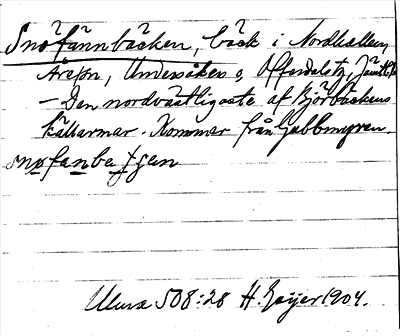 Snöfännbäcken, bäck i Nordhallen,
Åresn, Undersåkers o, Offerdals tg, Jämtl.
- Den nordvästligaste af Björbäckens
källarmar. Kommer från Gabbmyren.
snøfanbetjen
Ulma 508:28 H. Geijer 1904.